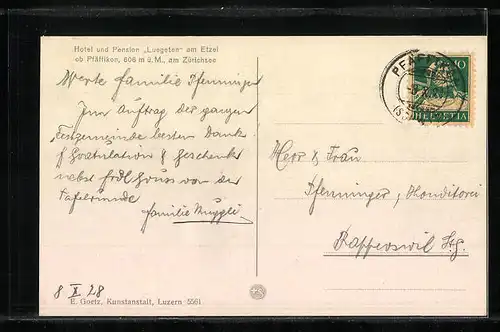 Hotel und Pension „Luegeten" am Etzel
ob Pfäffikon, 606 m ü. M., am Zürichsee
Werte Familie Pfenninger
Im Auftrag der ganzen
Festgemeinde besten Dank
f Gratulation & Geschenk
nebst frdl Gruss von der
Tafelrunde
Familie Muggli
8 X 28
E. Goetz, Kunstanstalt, Luzern 5561
PFÄFF
10
HELVETIA
Herr & Frau
Pfenninger, Konditorei
Rapperswil Stg.